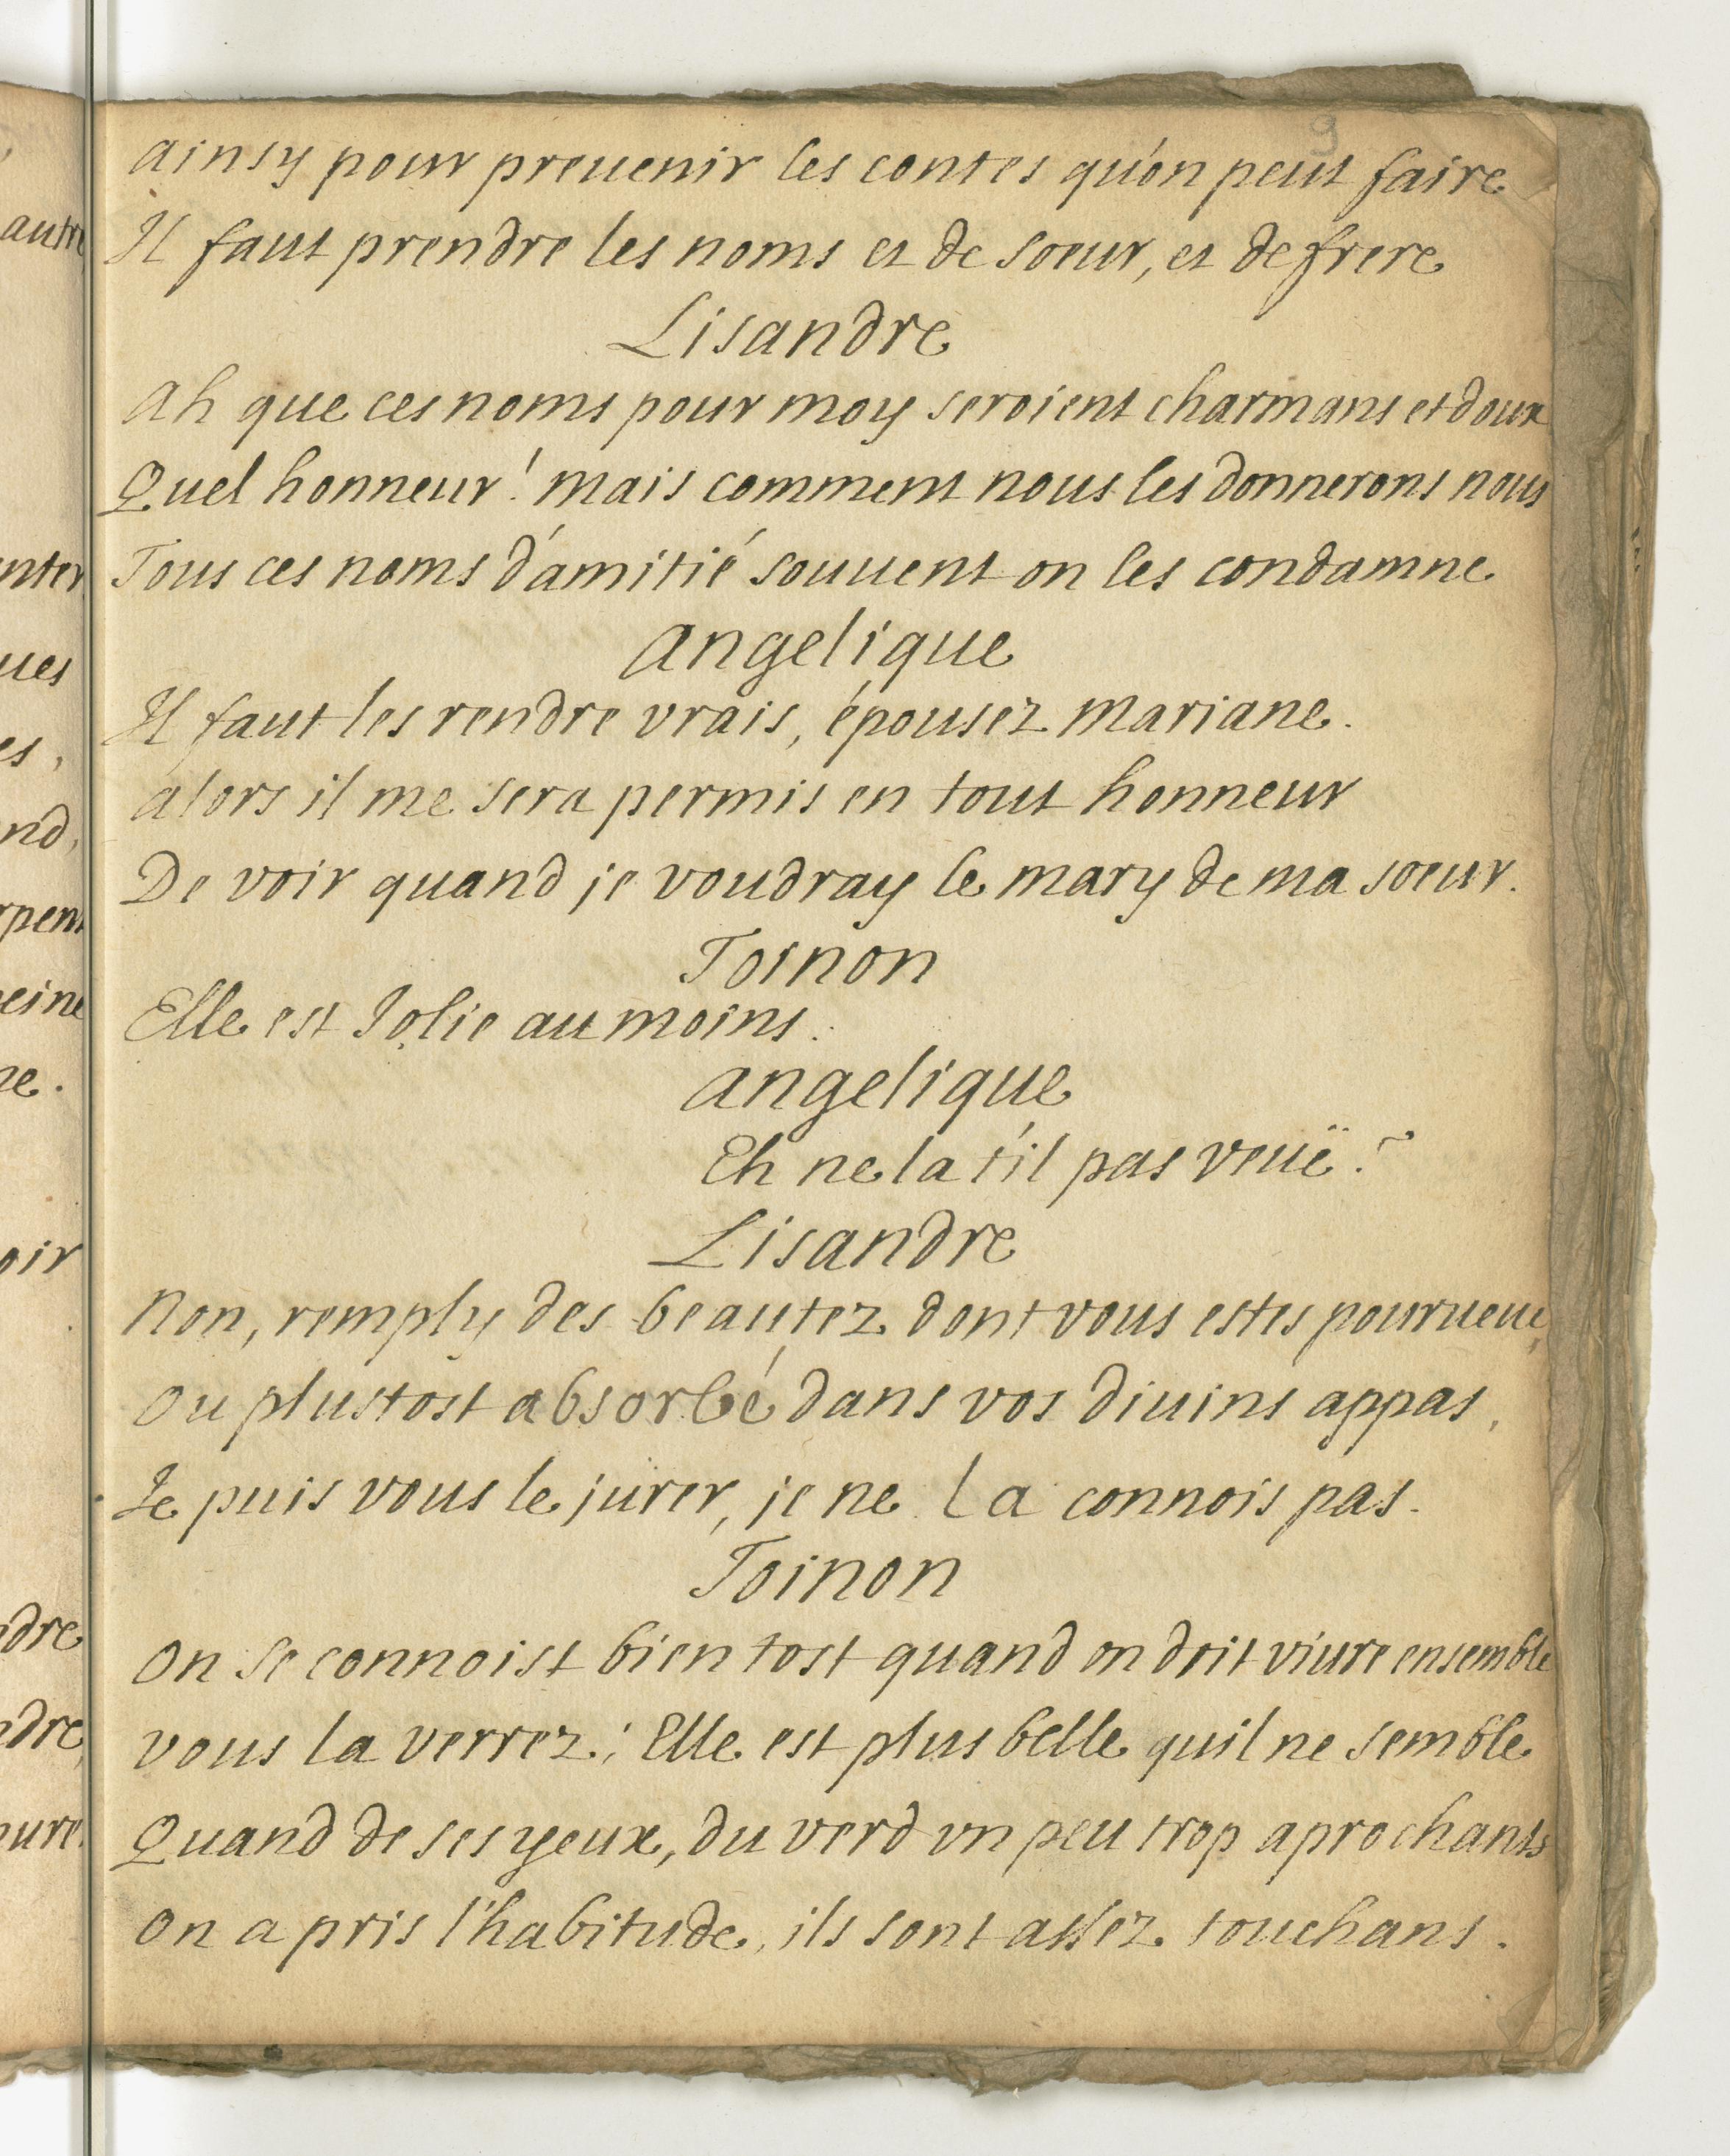 9
ainsy pour preuenir les contes qu'on peut faire
Il faut prendre les noms et de soeur, et de frere
Lisandre
Ah que ces noms pour moy seroient charmans et doux
Quel honneur! mais comment nous les donnerons nous
Tous ces noms d'amitié souuent on les condamne
angelique
Il faut les rendre vrais, épousez Mariane.
alors il me sera permis en tout honneur
De voir quand je voudray le mary de ma soeur.
Toinon
Elle est Jolie au moins.
angelique
Eh ne la t'il pas veuë?
Lisandre
Non, remply des beautez dont vous estes pourueue,
ou plustost absorbé dans vos diuins appas,
Je puis vous le jurer, je ne la connois pas.
Toinon
On se connoist bien tost quand on doit viure ensemble
vous la verrez; Elle est plus belle quil ne semble
Quand de ses yeux, du verd vn peu trop aprochants
on a pris l'habitude, ils sont assez touchans.
autre
nter
ues
es,
nd,
rpent
eine
ne.
oir
ndre
ndre,
ure.